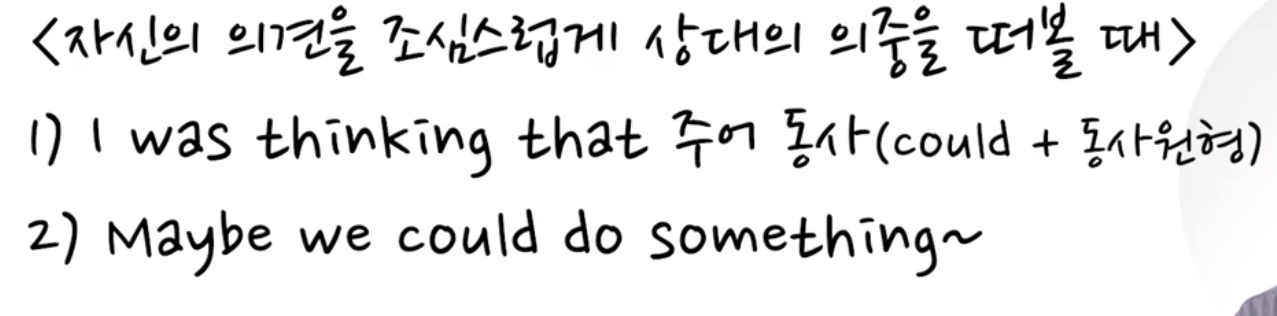 <자신의 의견을 조심스럽게 상대의 의중을 떠볼 때>
1) I was thinking that 주어 동사(could + 동사원형)
2) Maybe we could do something~